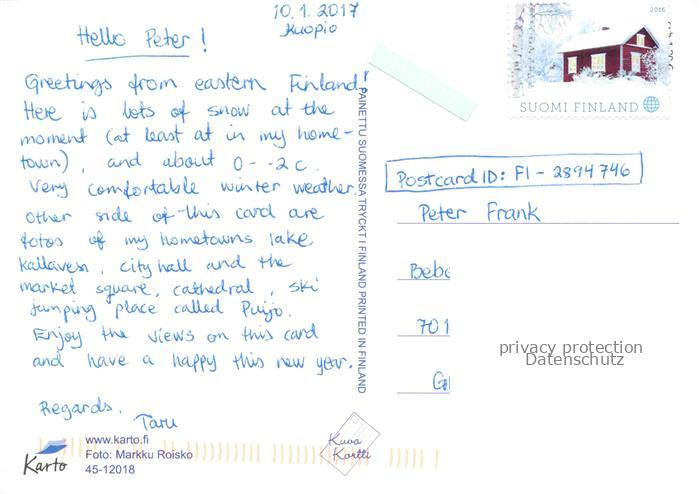 10.1.2017
Kuopio
Hello Peter!
Greetings from eastern Finland!
Here is lots of snow at the
moment (at least at in my home-
town), and about 0--2 c.
Very comfortable winter weather.
Other side of this card are
fotos of my hometowns lake
Kallavesi, city hall and the
market square, cathedral, ski
jumping place called Puijo.
Enjoy the views on this card
and have a happy this new year.
Regards,
Taru
www.karto.fi
Foto: Markku Roisko
45-12018
Karto
PAINETTU SUOMESSA TRYCKT I FINLAND PRINTED IN FINLAND
Kuva
Kortti
2016
SUOMI FINLAND
Postcard ID: FI-2894746
Peter Frank
Bebe
701
privacy protection
Datenschutz